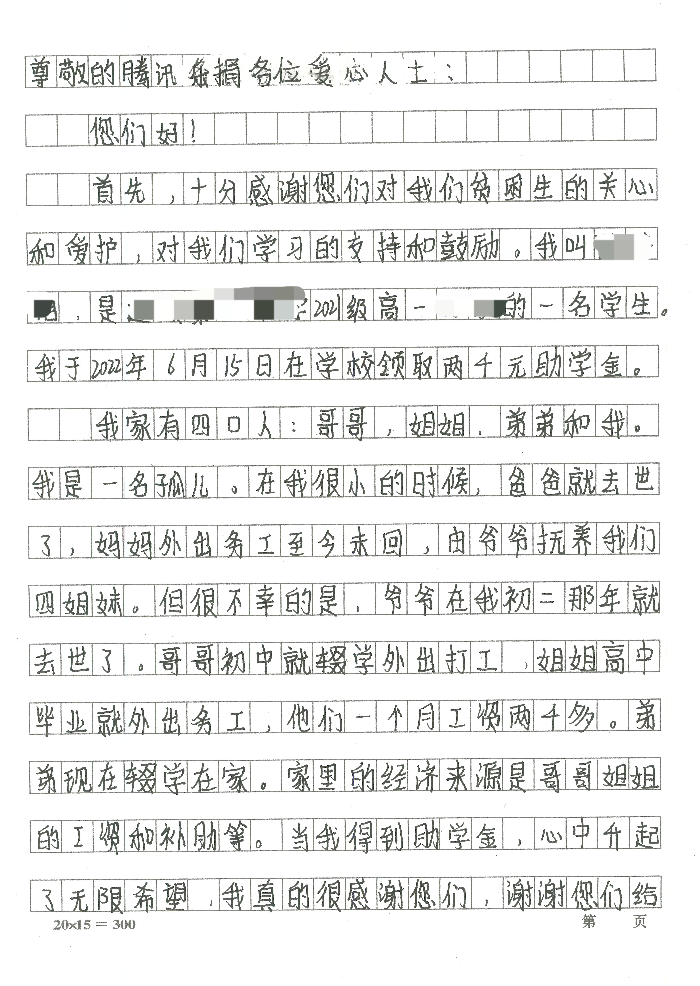 尊敬的腾讯乐捐各位爱心人士：
您们好！
首先，十分感谢您们对我们贫困生的关心
和爱护，对我们学习的支持和鼓励。我叫
，是2021级高一的一名学生。
我于2022年6月15日在学校领取两千元助学金。
我家有四口人：哥哥，姐姐，弟弟和我。
我是一名孤儿。在我很小的时候，爸爸就去世
了，妈妈外出务工至今未回，由爷爷抚养我们
四姐妹。但很不幸的是，爷爷在我初二那年就
去世了。哥哥初中就辍学外出打工，姐姐高中
毕业就外出务工，他们一个月工资两千多。弟
弟现在辍学在家。家里的经济来源是哥哥姐姐
的工资和补助等。当我得到助学金，心中升起
了无限希望，我真的很感谢您们，谢谢您们给
20×15＝300 第 页